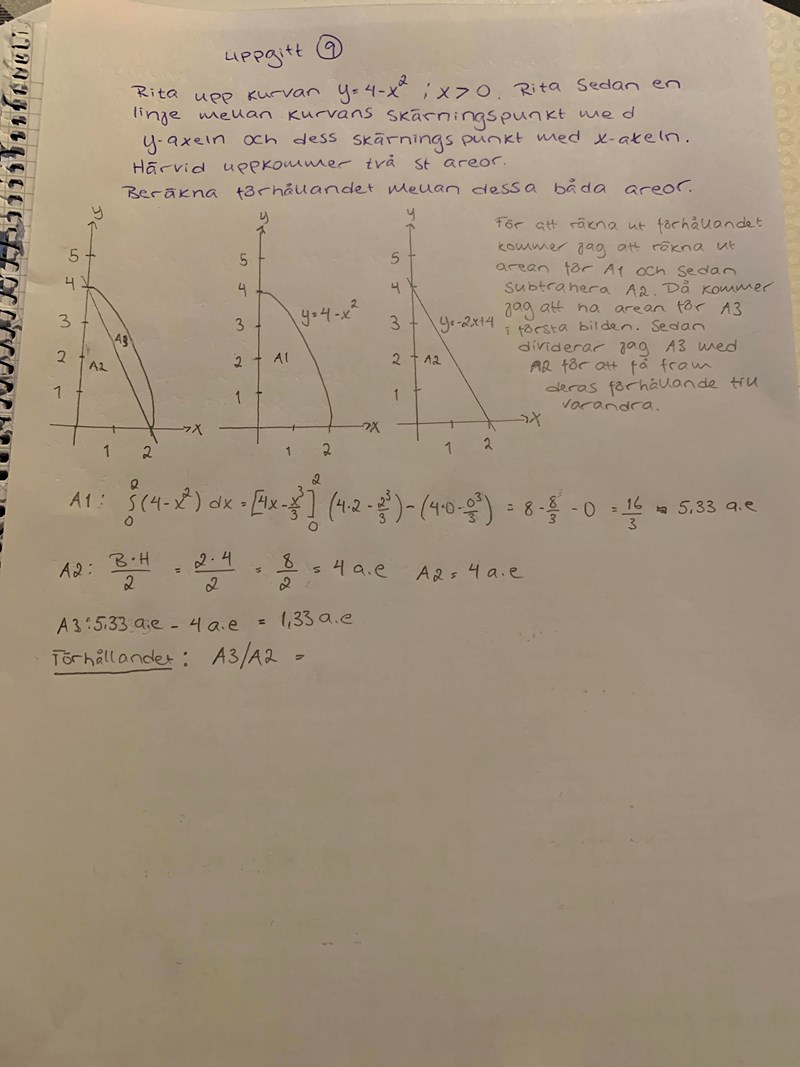 Uppgift 9
Rita upp kurvan y=4-x² ; x>0. Rita Sedan en
linje mellan kurvans skärningspunkt med
y-axeln och dess skärningspunkt med x-axeln.
Härvid uppkommer två st areor.
Beräkna förhållandet mellan dessa båda areor.
y
5
4
3
2
1
A3
A2
1 2
x
y
5
4
3
2
1
y=4-x²
A1
1 2
x
y
5
4
3
2
1
y=-2x+4
A2
1 2
x
För att räkna ut förhållandet
kommer jag att räkna ut
arean för A1 och sedan
subtrahera A2. Då kommer
jag att ha arean för A3
i första bilden. Sedan
dividerar jag A3 med
A2 för att få fram
deras förhållande till
varandra.
A1: ∫₀² (4-x²) dx = [4x-x³/3]₀² (4·2-2³/3)-(4·0-0³/3) = 8-8/3-0 = 16/3 ≈ 5,33 a.e
A2: B·H/2 = 2·4/2 = 8/2 = 4 a.e A2 = 4 a.e
A3: 5,33 a.e - 4 a.e = 1,33 a.e
Förhållandet: A3/A2 =